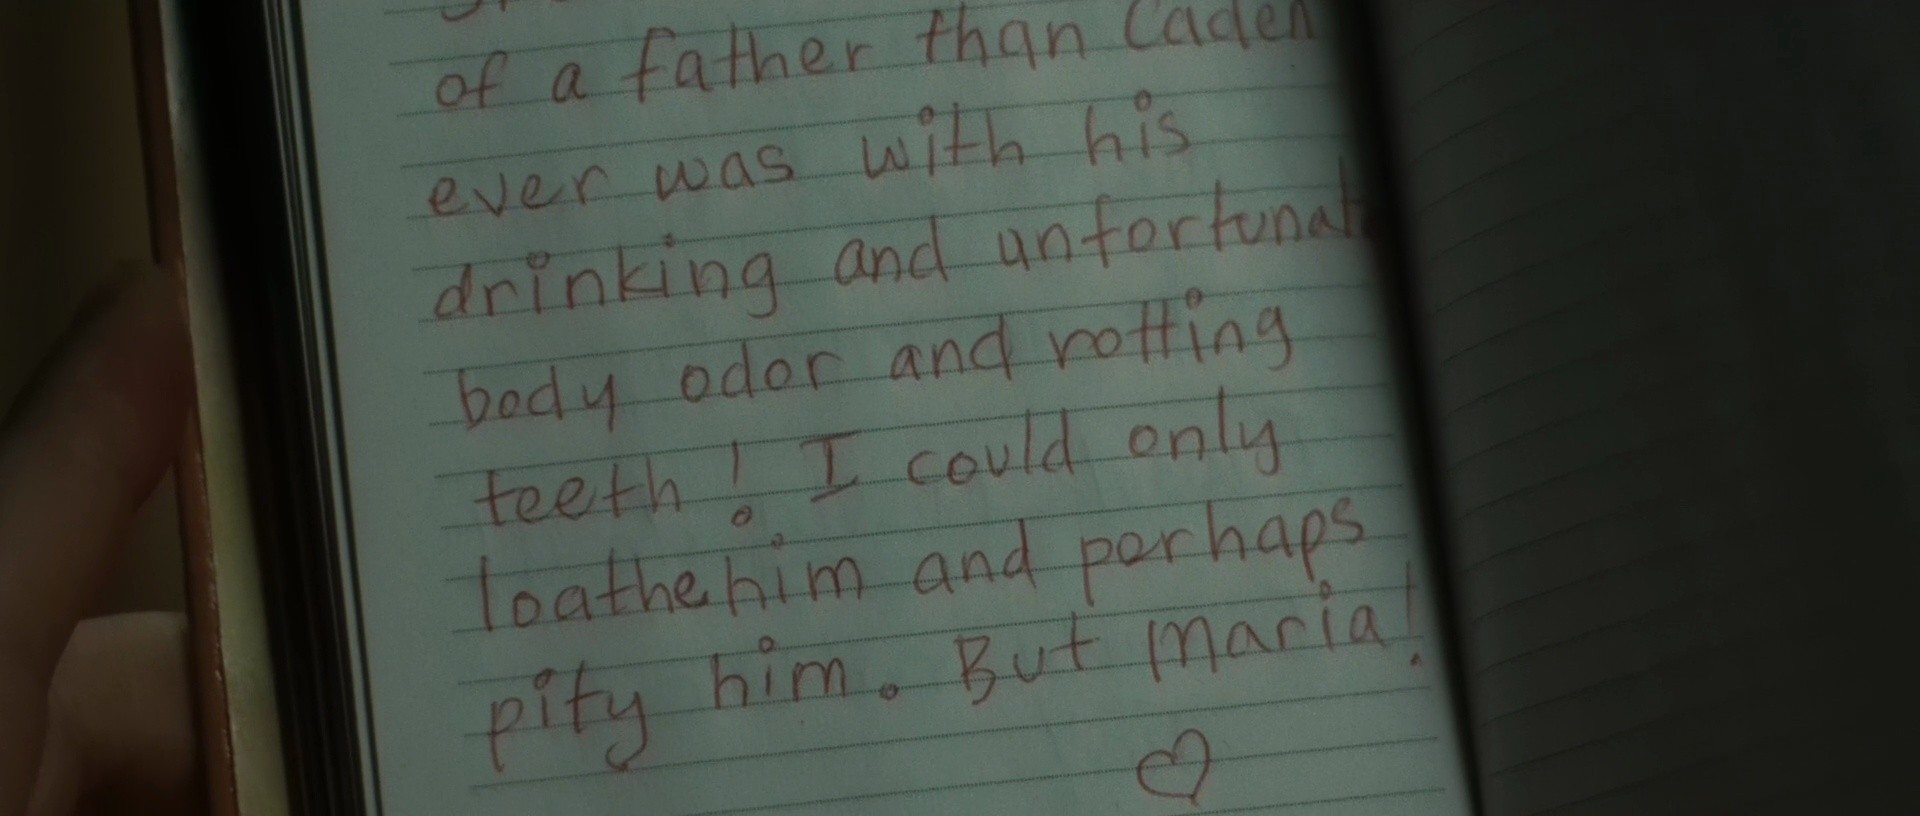 of a father than Caden
ever was with his
drinking and unfortunat
body odor and rotting
teeth! I could only
loathe him and perhaps
pity him. But Maria!